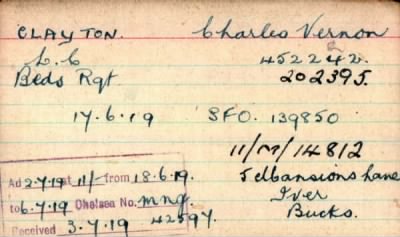 CLAYTON. Charles Vernon
L. C 452242.
Beds Rgt 202395.
17.6.19 SFO. 139850
11/M/14812
Ad 2.7.19 at 11/- from 18.6.19. 5 Mansions Lane
to 6.7.19 Chelsea No. mng Iver
Received 3.7.19 42597. Bucks.